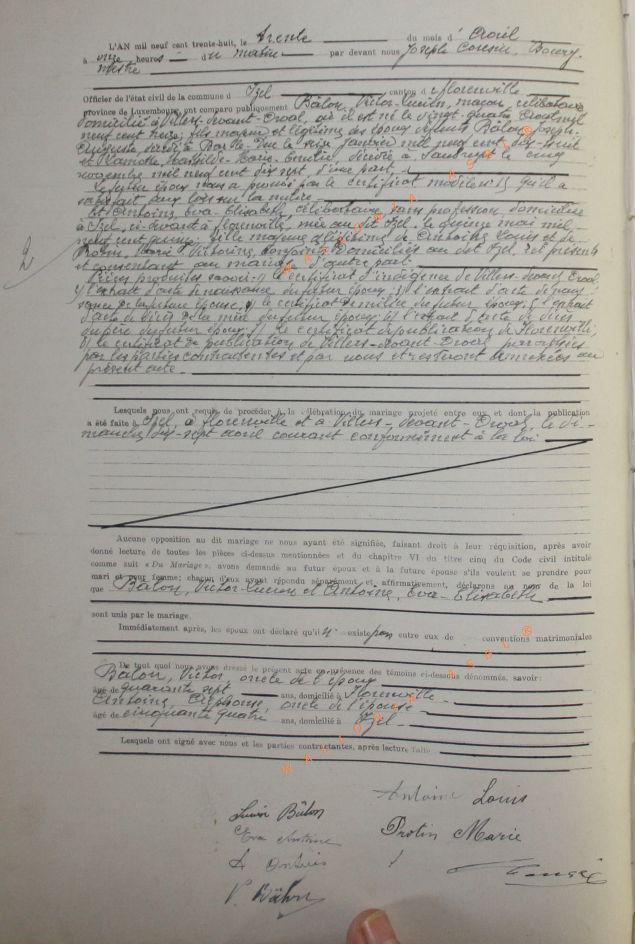 L'AN mil neuf cent trente-huit, le trente du mois d' Avril
à onze heures du matin par devant nous Joseph
Officier de l'état civil de la commune d' Izel canton d Florenville
province de Luxembourg, ont comparu publiquement Bâlon, Victor-Lucien, maçon, célibataire
domicilié à Villers-devant-Orval, où il est né le vingt-quatre
neuf cent treize, fils majeur et légitime des époux défunts Bâlon, Joseph-
décédé à le seize janvier mil neuf cent dix-huit
et décédée à le cinq
novembre mil neuf cent dix sept, d'une part,
le futur époux nous a prouvé par le certificat modèle n° 15 qu'il a
satisfait aux lois sur la milice
Et Antoine, Eva-Elisabeth, célibataire, sans profession, domiciliée
à Izel, ci-devant à Florenville, née au dit Izel le quinze mai mil
neuf cent fille majeure et légitime de Antoine Louis et de
Protin, Marie conjoints domiciliés au dit Izel, ici présents
et consentant au mariage, d'autre part.
Pièces produites savoir: 1) le certificat d'indigence de Villers-devant-Orval,
2) l'extrait d'acte de naissance du futur époux; 3) l'extrait d'acte de nais-
sance de la future épouse, 4) le certificat de milice du futur époux; 5) l'extrait
d'acte de décès de la mère du futur époux; 6) l'extrait d'acte de décès
du père du futur époux; 7) le certificat de publication de Florenville;
8) le certificat de publication de Villers-devant-Orval, paraphées
par les parties contractantes et par nous et resteront annexées au
présent acte
2
Lesquels nous ont requis de procéder à la célébration du mariage projeté entre eux et dont la publication
a été faite à Izel, à Florenville et à Villers-devant-Orval, le di-
manche dix-sept avril courant conformément à la loi
Aucune opposition au dit mariage ne nous ayant été signifiée, faisant droit à leur réquisition, après avoir
donné lecture de toutes les pièces ci-dessus mentionnées et du chapitre VI du titre cinq du Code civil intitulé
comme suit « Du Mariage », avons demandé au futur époux et à la future épouse s'ils veulent se prendre pour
mari et pour femme; chacun d'eux ayant répondu séparément et affirmativement, déclarons au nom de la loi
que Bâlon, Victor-Lucien et Antoine, Eva-Elisabeth
sont unis par le mariage.
Immédiatement après, les époux ont déclaré qu'il n'existe pas entre eux de conventions matrimoniales
De tout quoi nous avons dressé le présent acte en présence des témoins ci-dessous dénommés, savoir:
Bâlon, Victor, oncle de l'époux
âgé de quarante sept ans, domicilié à Florenville
Antoine, Alphonse, oncle de l'épouse
âgé de cinquante quatre ans, domicilié à Izel
Lesquels ont signé avec nous et les parties contractantes, après lecture faite
Antoine Louis
Lucien Bâlon
Eva Antoine
Protin Marie
A Antoine
V. Bâlon